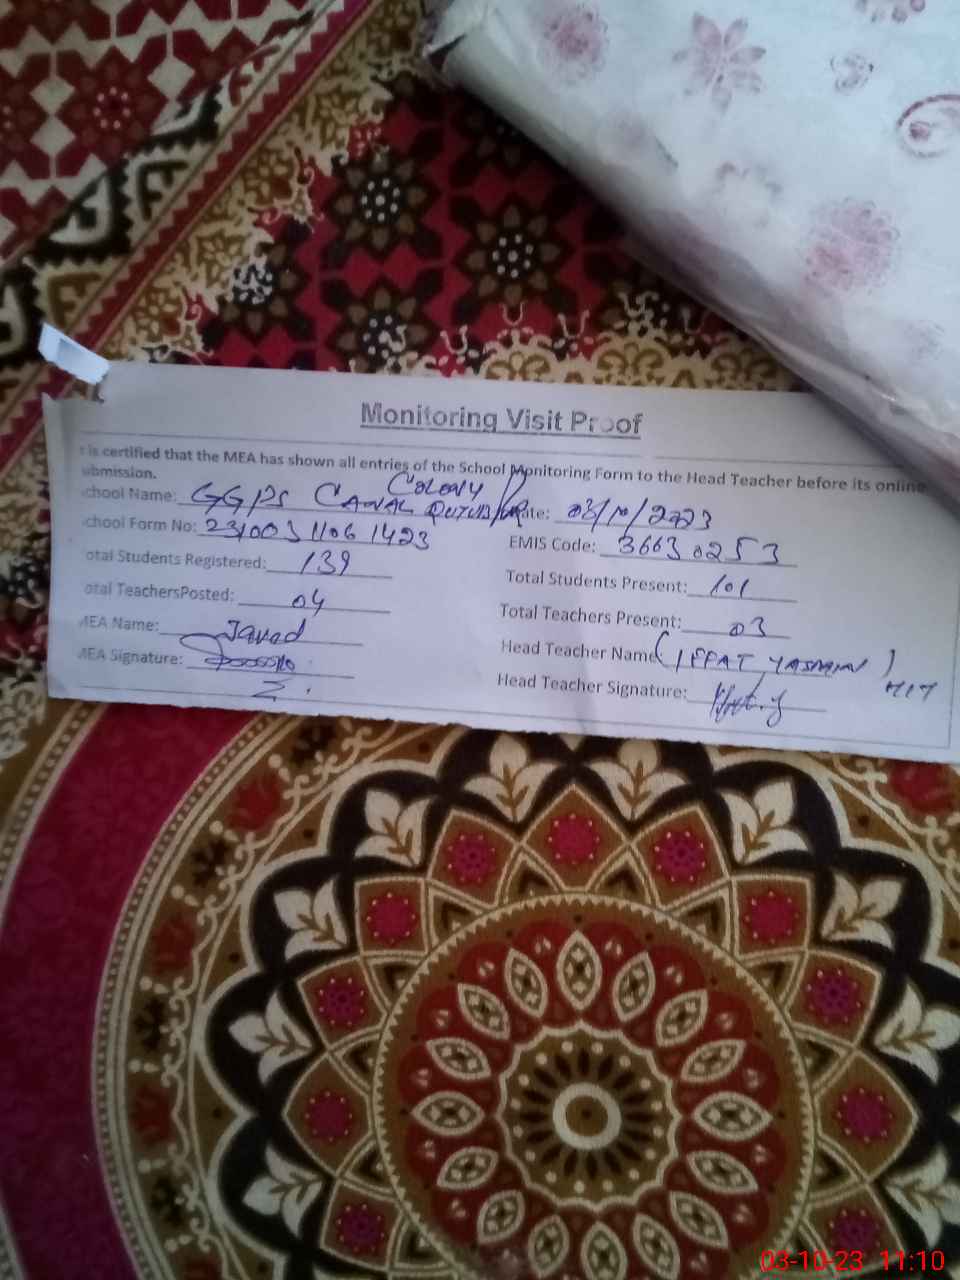 Monitoring Visit Proof
t is certified that the MEA has shown all entries of the School Monitoring Form to the Head Teacher before its online
ubmission.
chool Name: GGPS CANAL COLONY
ate: 03/10/2023
chool Form No: 231003 1106 1423
EMIS Code: 36630253
otal Students Registered: 139
Total Students Present: 101
otal TeachersPosted: 04
Total Teachers Present: 03
MEA Name: Javed
Head Teacher Name (IFFAT YASMIN)
MEA Signature:
Head Teacher Signature:
03-10-23 11:10